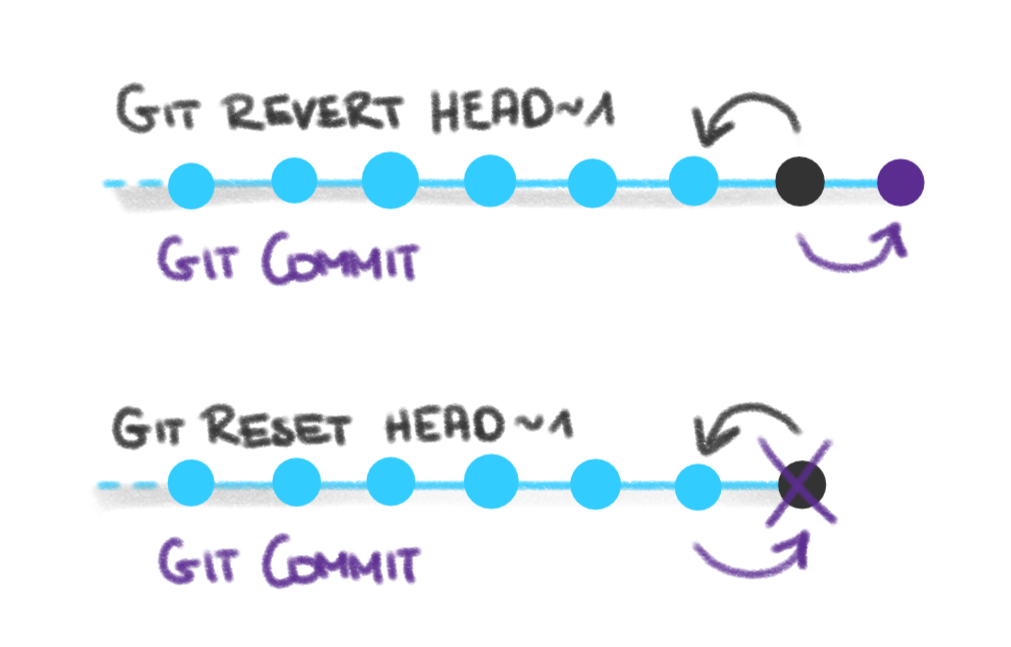 GIT REVERT HEAD~1
GIT COMMIT
GIT RESET HEAD~1
GIT COMMIT